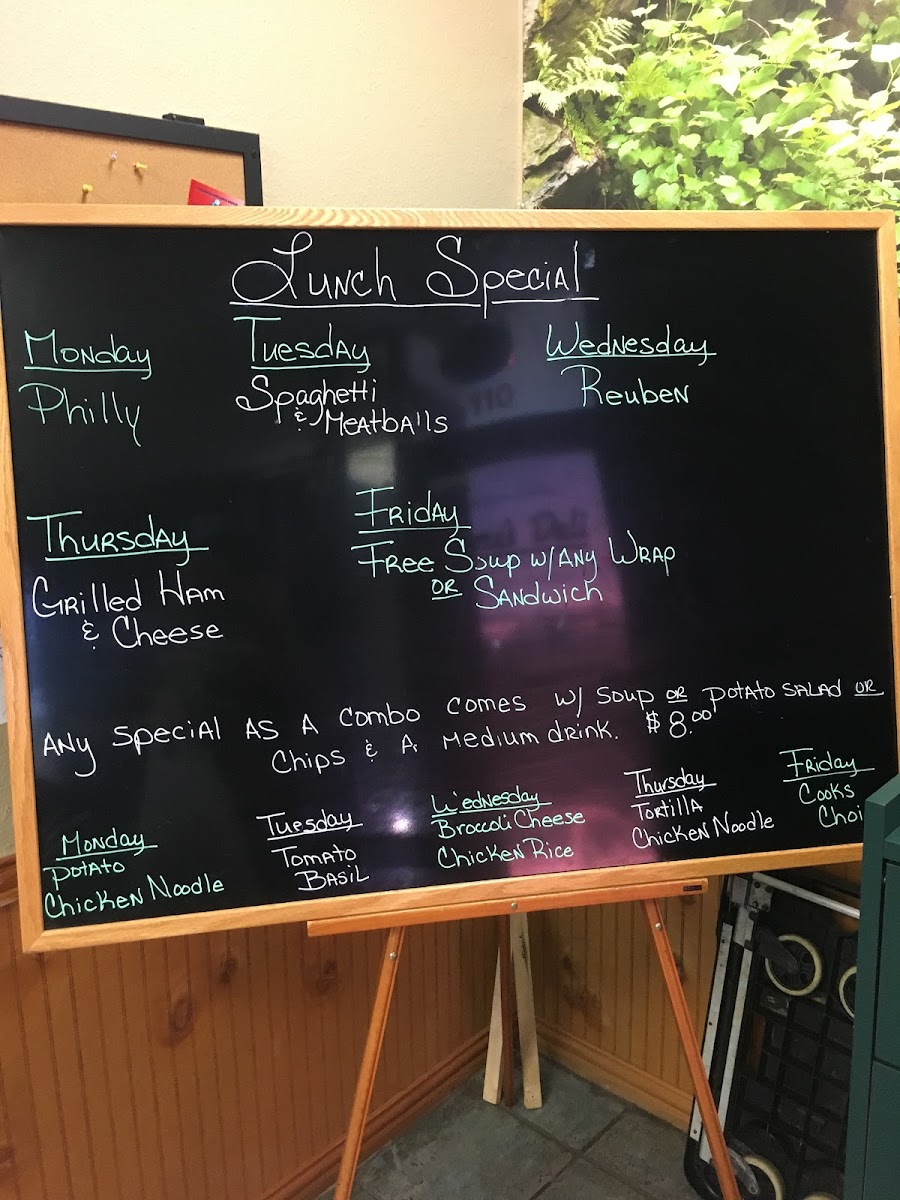 Lunch Special
Monday
Philly
Tuesday
Spaghetti
& Meatballs
Wednesday
Reuben
Thursday
Grilled Ham
& Cheese
Friday
Free Soup w/Any Wrap
or Sandwich
Any special as a combo comes w/ soup or potato salad or
chips & a medium drink. $8.00
Monday
Potato
Chicken Noodle
Tuesday
Tomato
Basil
Wednesday
Broccoli Cheese
Chicken Rice
Thursday
Tortilla
Chicken Noodle
Friday
Cooks
Choi
110